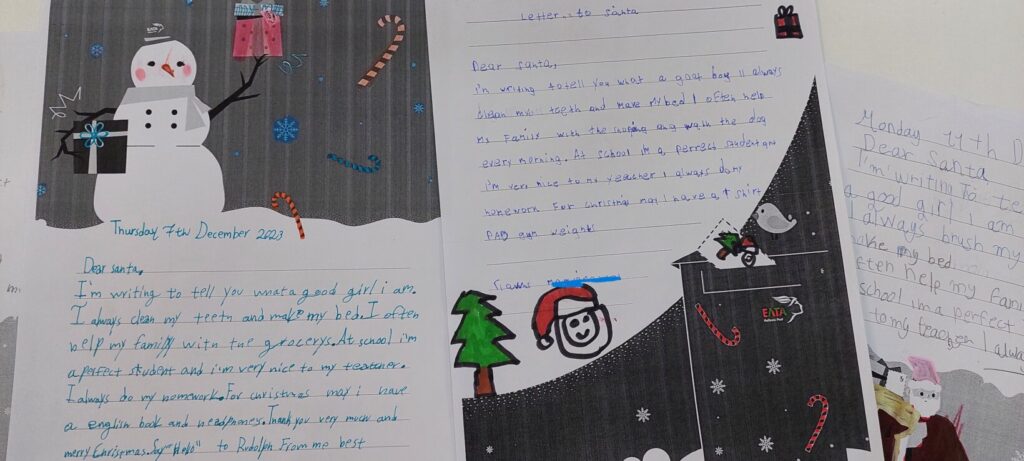 ΕΛΤΑ
Thursday 7th December 2023
Dear santa,
I'm writing to tell you what a good girl i am.
I always clean my teeth and make my bed. I often
help my family with the grocerys. At school i'm
a perfect student and i'm very nice to my teacher.
I always do my homework. For christmas may i have
a english book and headphones. Thank you very much and
merry Christmas. Say "Hello" to Rudolph From me best
Letter to santa
Dear santa,
i'm writing to tell you what a goat boy I always
clean my teeth and make my bed I often help
my family with the shoping and walk the dog
every morning. At school i'm a perfect student
i'm very nice to my teacher I always do my
homework For christmas may I have a t shirt
gym weights
ΕΛΤΑ
Hellenic Post
Monday 11th D
Dear santa
I'm writing to te
a good girl i am
I always brush my
make my bed
often help my fami
school i'm a perfect
to my teacher I alwa